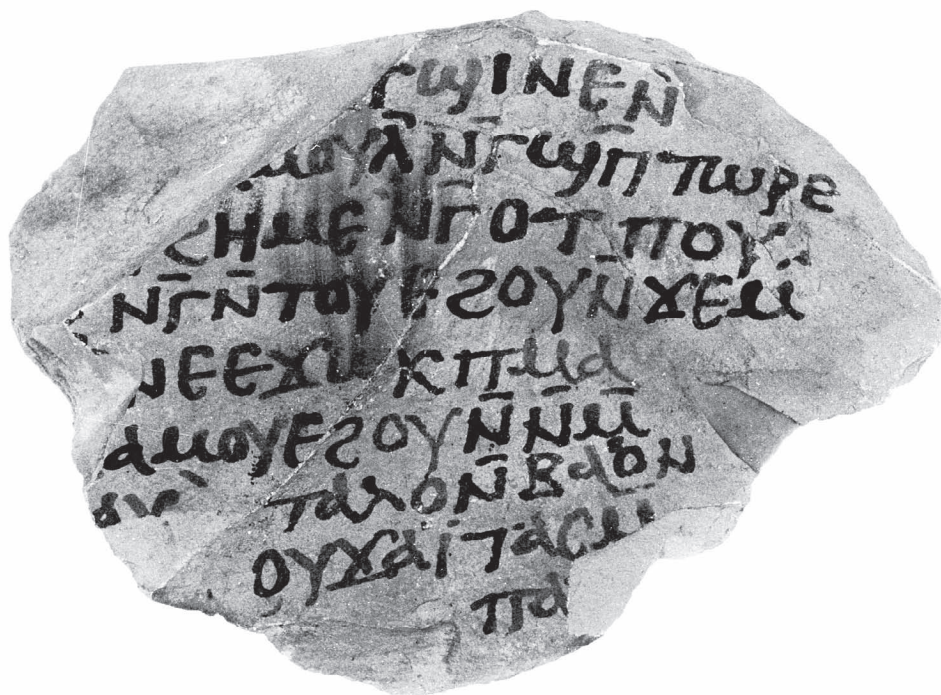 ⲅϣⲓⲛⲉⲛ
ⲙⲟⲩⲗⲛ̄ⲅϣⲡ̄ⲧⲱⲣⲉ
ϩⲏⲙⲉⲛⲅ̄ⲟⲧⲡⲟⲩ
ⲛⲅ̄ⲛ̄ⲧⲟⲩⲉϩⲟⲩⲛ̄ϫⲉⲙ
ⲛⲉⲉϫⲛ ⲕⲡⲙⲁ
ⲁⲙⲟⲩⲉϩⲟⲩⲛ̄ⲛ̄ⲙ̄
ⲧⲁⲗⲟⲛ̄ⲃⲁⲟⲛ
ⲟⲩϫⲁⲓⲧⲁⲥⲙ
ⲡⲁ